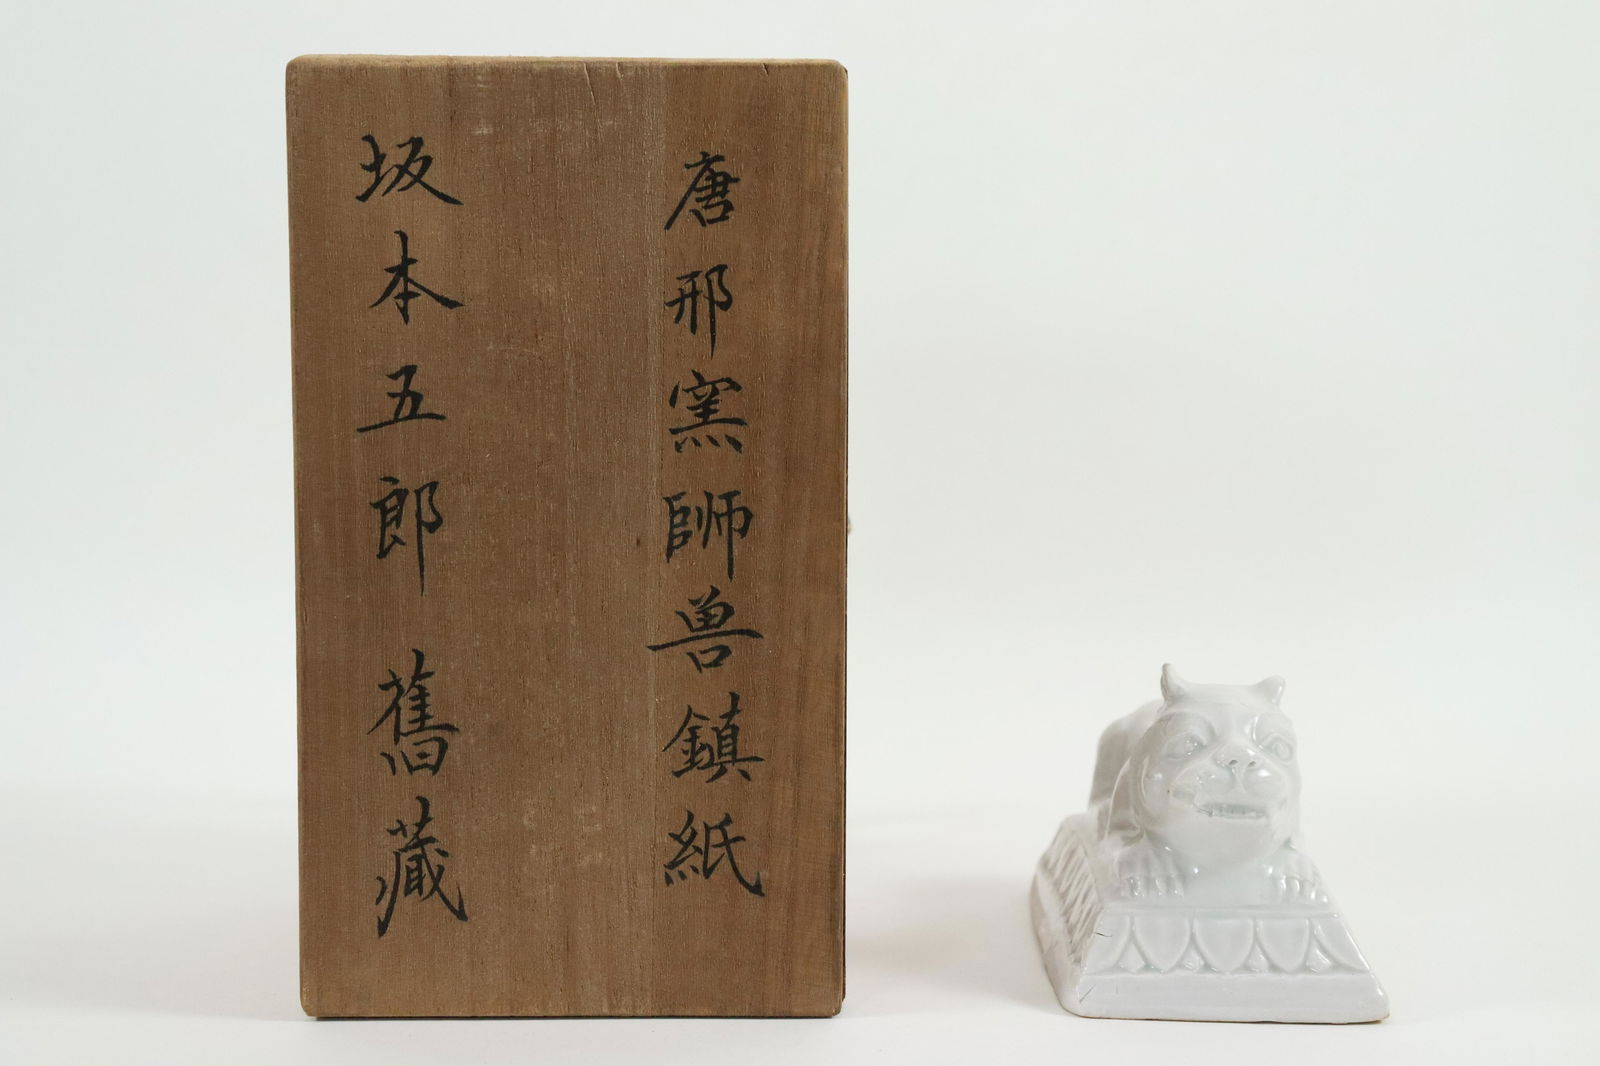 唐邢窯師兽鎮紙
坂本五郎 舊藏